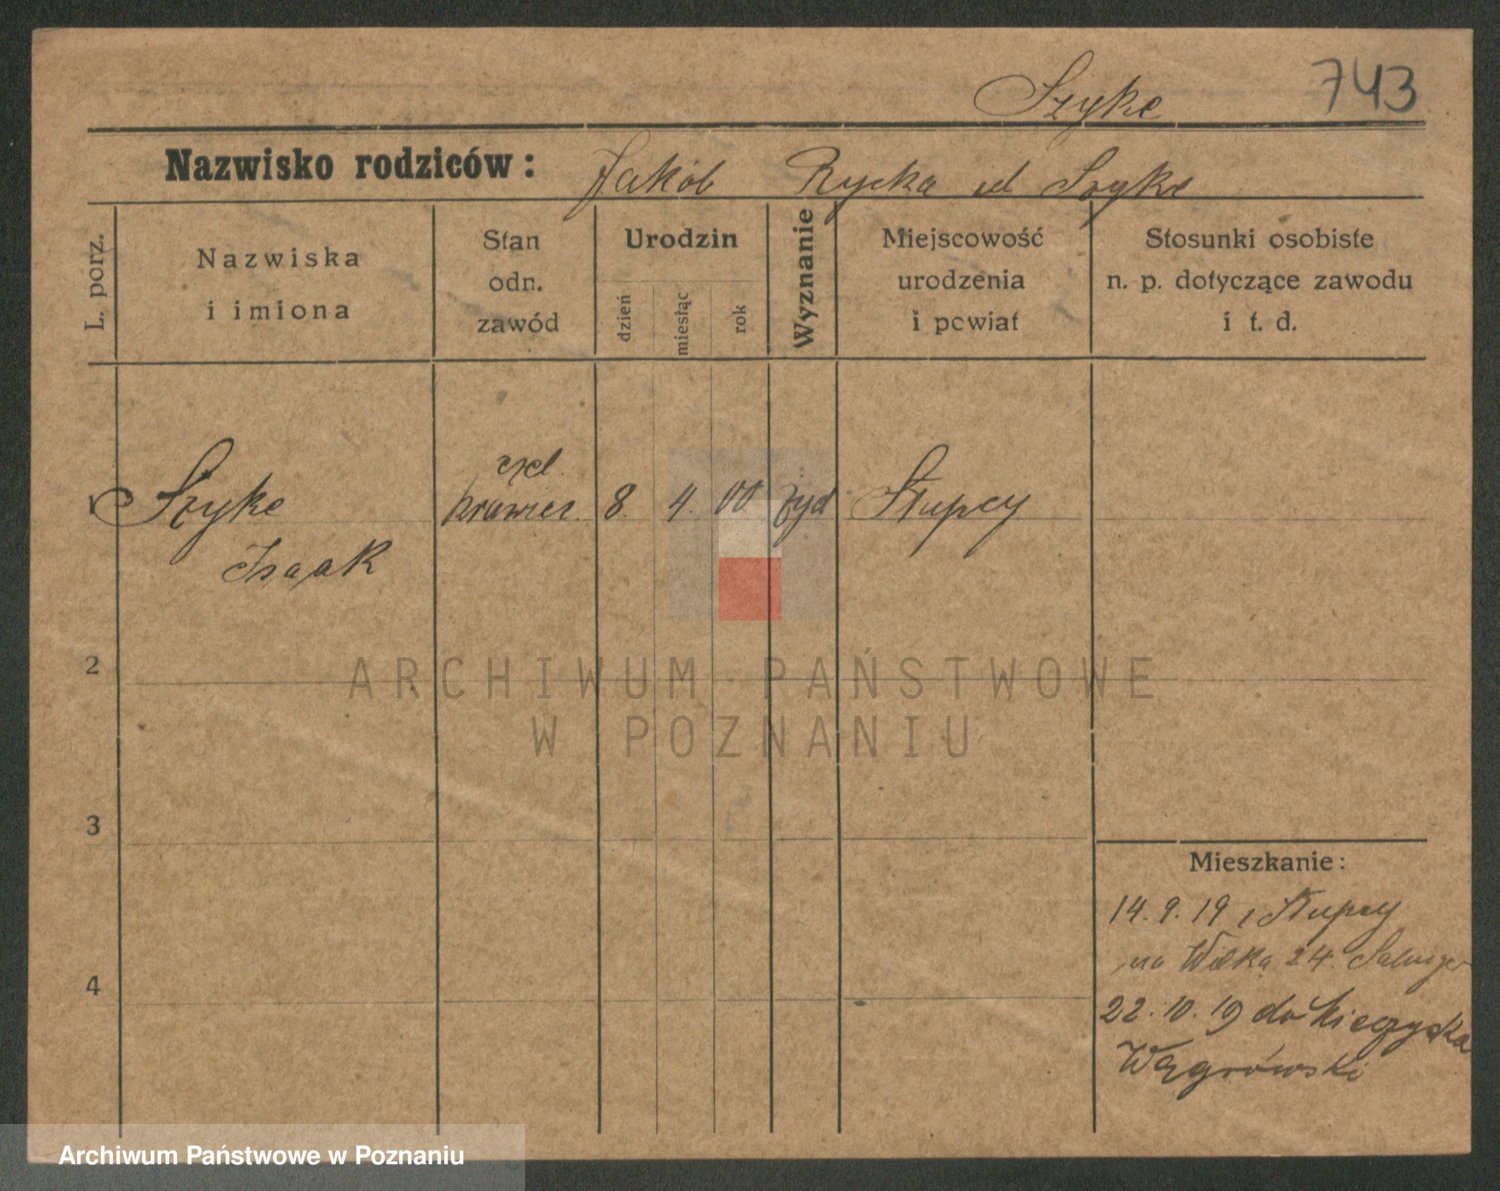 Szyke 743
Nazwisko rodziców: Jakób Rycka Szyke
L. porz.
Nazwiska
i imiona
Stan
odn.
zawód
Urodzin
dzień
miesiąc
rok
Wyznanie
Miejscowość
urodzenia
i powiat
Stosunki osobiste
n. p. dotyczące zawodu
i t. d.
1 Szyke
Isaak
czel.
krawiec
8. 4. 00 żyd Słupcy
2
3
4
ARCHIWUM PAŃSTWOWE
W POZNANIU
Mieszkanie:
14. 9. 19 z Słupcy
na Wilka 24.
22. 10. 19 do
Wągrówski
Archiwum Państwowe w Poznaniu